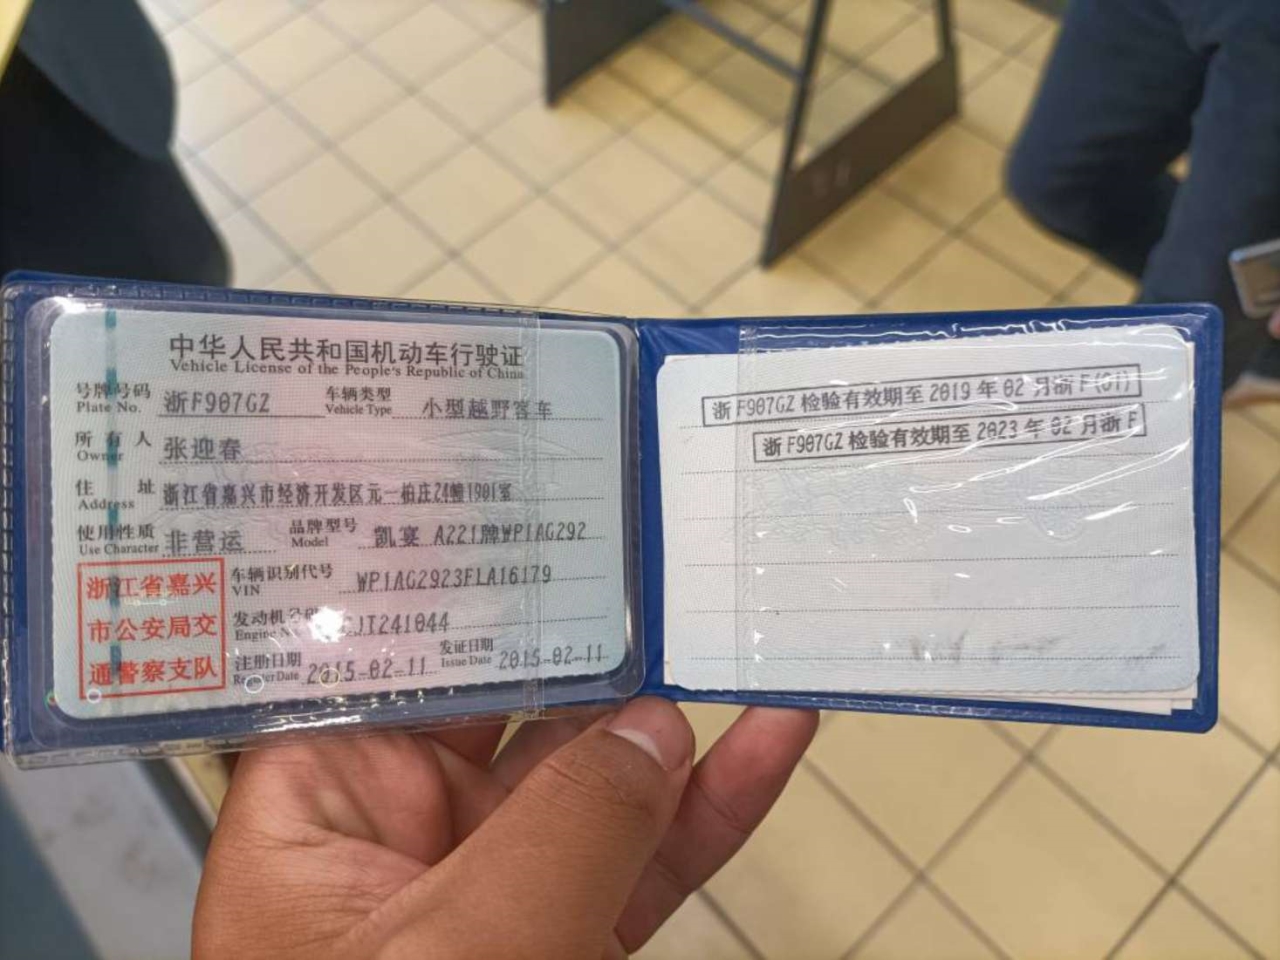 中华人民共和国机动车行驶证
Vehicle License of the People's Republic of China
号牌号码 浙F907GZ 车辆类型 小型越野客车
Plate No. Vehicle Type
所有人 张迎春
Owner
住址 浙江省嘉兴市经济开发区元一柏庄24幢1901室
Address
使用性质 非营运 品牌型号 凯宴 A221牌WP1AG292
Use Character Model
浙江省嘉兴
市公安局交
通警察支队
车辆识别代号 WP1AG2923FLA16179
VIN
发动机号码 JT241044
Engine No.
注册日期 2015-02-11 发证日期 2015-02-11
Register Date Issue Date
浙F907GZ 检验有效期至 2019 年 02 月浙 F(01)
浙F907GZ 检验有效期至 2023 年 02 月浙 F